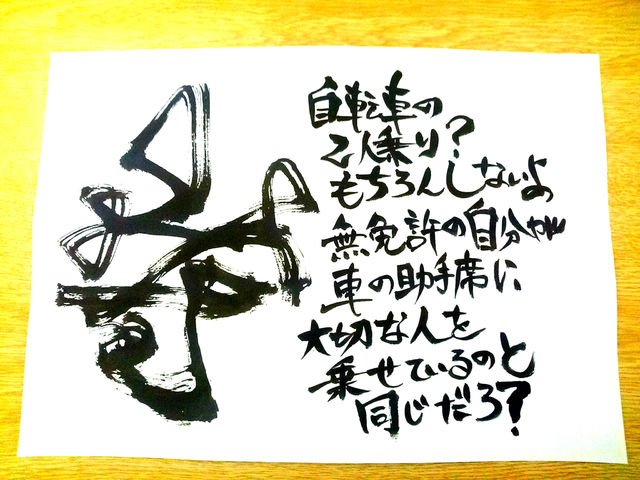 自転車の
2人乗り?
もちろんしないよ
無免許の自分が
車の助手席に
大切な人を
乗せているのと
同じだろ?